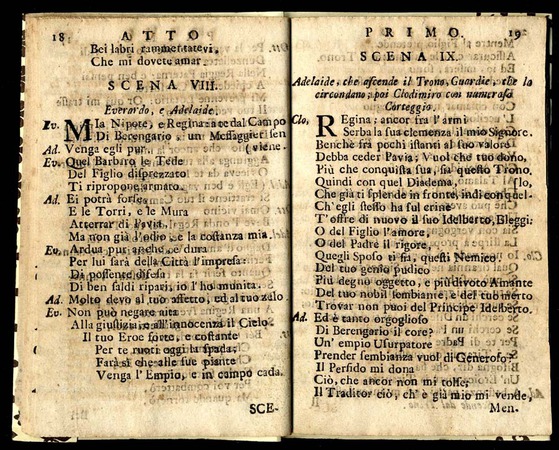 18 ATTO
Bei labri rammentatevi,
Che mi dovete amar.
SCENA VIII.
Everardo, e Adelaide.
Ev. Mia Nipote, e Regina: ate dal Campo
Di Berengario, un Messaggier sen
Ad. Venga egli pur. (viene.
Ev. Quel Barbaro le Tede
Del Figlio disprezzato
Ti ripropone armato.
Ad. Ei potrà forse
E le Torri, e le Mura
Atterrar di Pavia,
Ma non già l'odio, e la costanza mia.
Ev. Ardua pur anche, e dura
Per lui sarà della Città l'impresa:
Di possente difesa
Di ben saldi ripari, io l'ho munita.
Ad. Molto devo al tuo affetto, ed al tuo zelo
Ev. Non può negare aita
Alla giustizia, e all'innocenza il Cielo.
Il tuo Eroe forte, e costante
Per te ruoti oggi la spada;
Farà sì che alle tue piante
Venga l'Empio, e in campo cada.
SCE-
PRIMO. 19
SCENA IX.
Adelaide, che ascende il Trono, Guardie, che la
circondano; poi Clodimiro con numeroso
Corteggio.
Clo, Regina; ancor fra l'armi
Serba la sua clemenza il mio Signore.
Benchè frà pochi istanti al suo valore
Debba ceder Pavia; Vuol che tuo dono,
Più che conquista sua, sia questo Trono.
Quindi con quel Diadema, (lo,
Che già ti splende in fronte, indi con quel-
Ch'egli stesso ha sul crine
T'offre di nuovo il suo Idelberto, Eleggi.
O del Figlio l'amore,
O del Padre il rigore,
Quegli Sposo ti sia, questi Nemico
Del tuo genio pudico
Più degno oggetto, e più divoto Amante
Del tuo nobil sembiante, e del tuo merto
Trovar non puoi del Principe Idelberto.
Ad. Ed è tanto orgoglioso
Di Berengario il core?
Un'empio Usurpatore
Prender sembianza vuol di Generoso?
Il Perfido mi dona
Ciò, che ancor non mi tolse;
Il Traditor ciò, ch'è già mio mi vende,
Men.